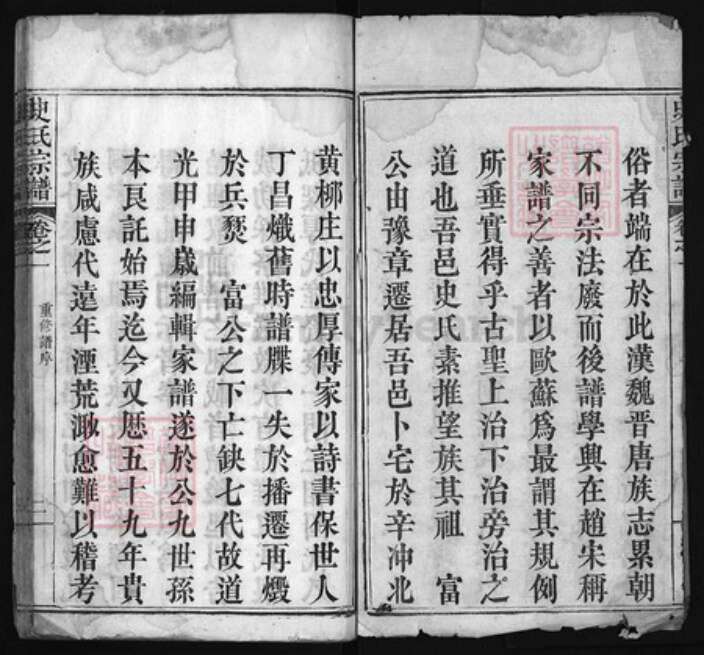 史氏宗譜
卷之一
俗者端在於此漢魏晉唐族志累朝
不同宗法廢而後譜學興在趙宋稱
家譜之善者以歐蘇爲最謂其規例
所垂實得乎古聖上治下治旁治之
道也吾邑史氏素推望族其祖 富
公由豫章遷居吾邑卜宅於辛冲北
黄栁庄以忠厚傳家以詩書保世人
丁昌熾舊時譜牒一失於播遷再燬
於兵燹 富公之下亡缺七代故道
光甲申歳編輯家譜遂於公九世孫
本良託始焉迄今又歴五十九年貴
族咸慮代遠年湮荒渺愈難以稽考
史氏宗譜
卷之一
重修譜序
二